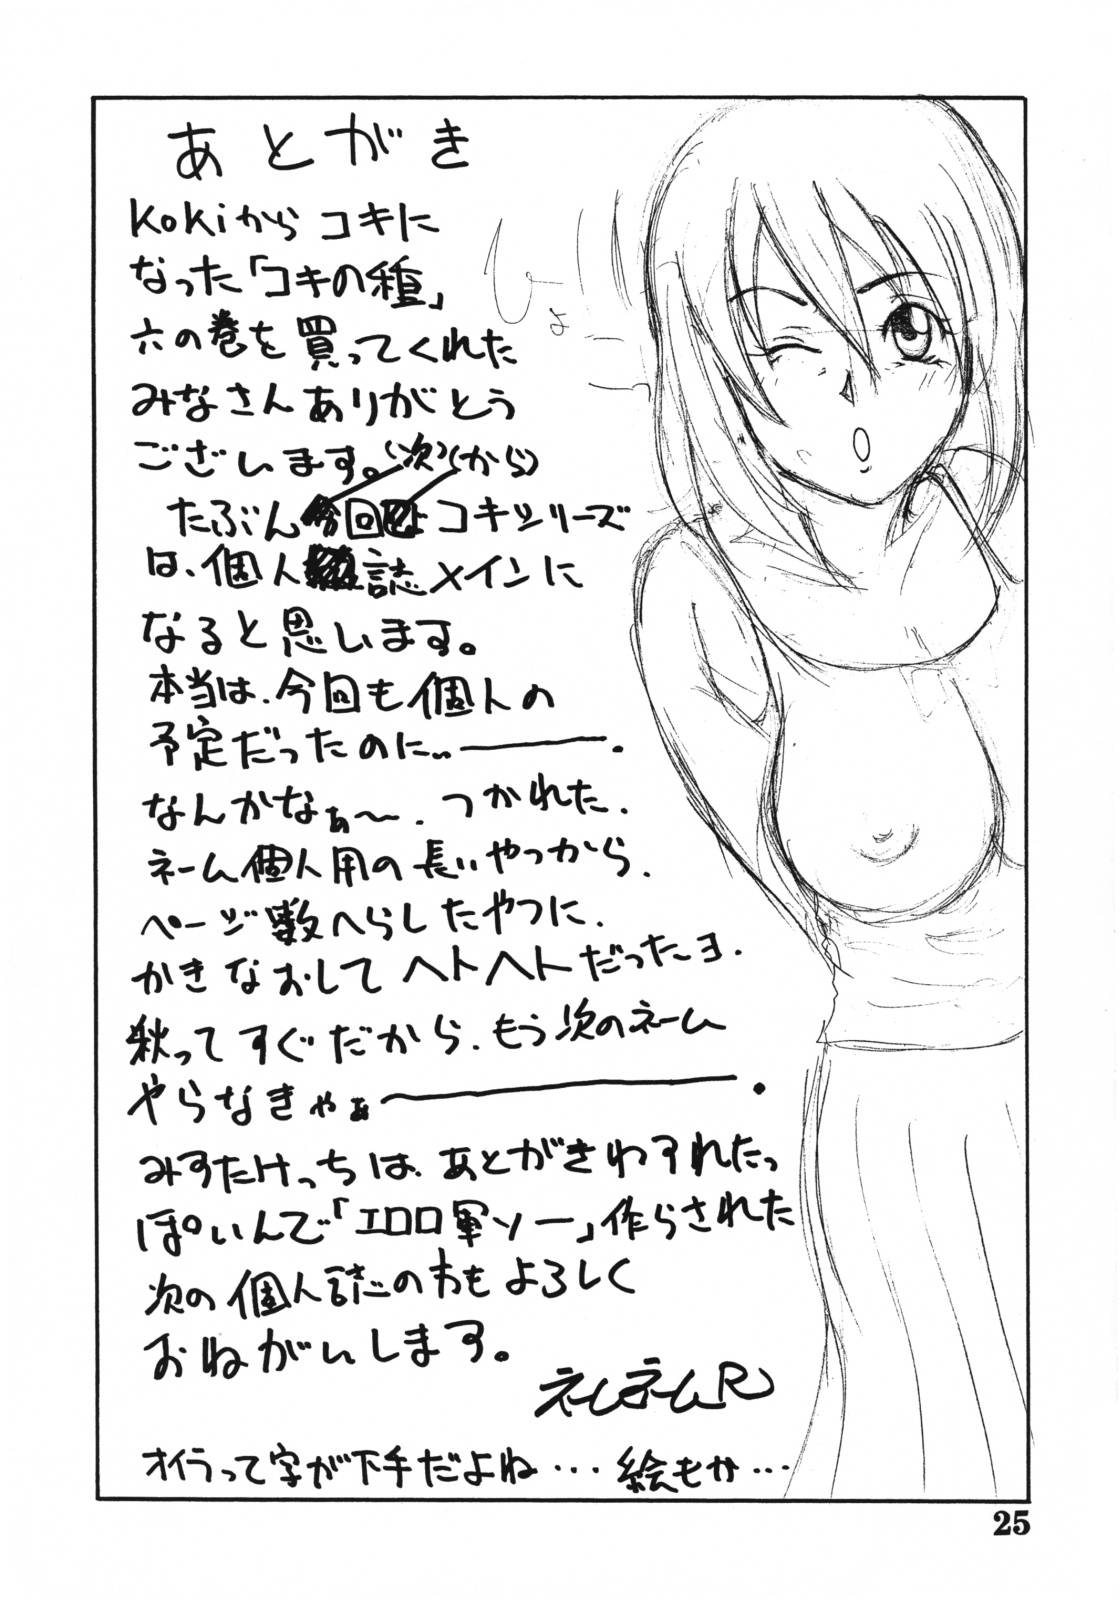 あとがき
kokiから コキに
なった「コキの種」
六の巻を買ってくれた
みなさんありがとう
ございます。(次)(から)
たぶん今回はコキシリーズ
は、個人誌メインに
なると思います。
本当は、今回も個人の
予定だったのに‥―――.
なんかなぁ〜. つかれた.
ネーム個人用の長いやつから.
ページ数へらしたやつに.
かきなおしてヘトヘトだったーヨ.
秋ってすぐだから. もう次のネーム
やらなきゃぁ―――.
みすたけっちは、あとがきわすれたっ
ぽいんで「エロロ軍ソー」作らされた
次の個人誌のわもよろしく
おねがいします。
ネームネームR
オイラって字が下手だよね・・・絵もか・・・
ひょ
25